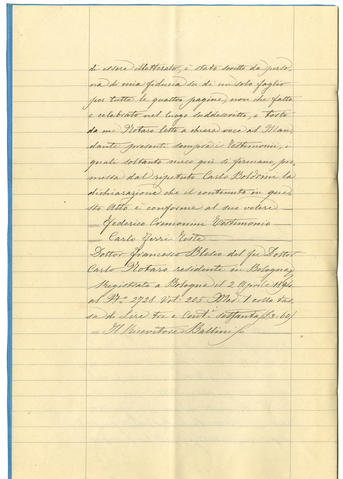 di essere illetterato, è stato scritto da perso-
na di mia fiducia su di un solo foglio
per tutte le quattro pagine, non che fatto
e celebrato nel luogo suddescritto, e tosto
da me Notaro letto a chiara voce al Man-
dante presenti sempre i Testimoni, i
quali soltanto meco qui si firmano, pre-
messa dal ripetuto Carlo Bolognini la
dichiarazione che il contenuto in que-
sto Atto è conforme al suo volere
Federico Cremonini Testimonio
Carlo Ferri Teste
Dottor Francesco del fu Dottor
Carlo Notaro residente in Bologna
Registrato a Bologna il 2 Aprile
al N° 2728 Vol° 225 Mod. 1 colla tas-
sa di Lire tre e Cent. (3.60)
Il Ricevitore Ballini